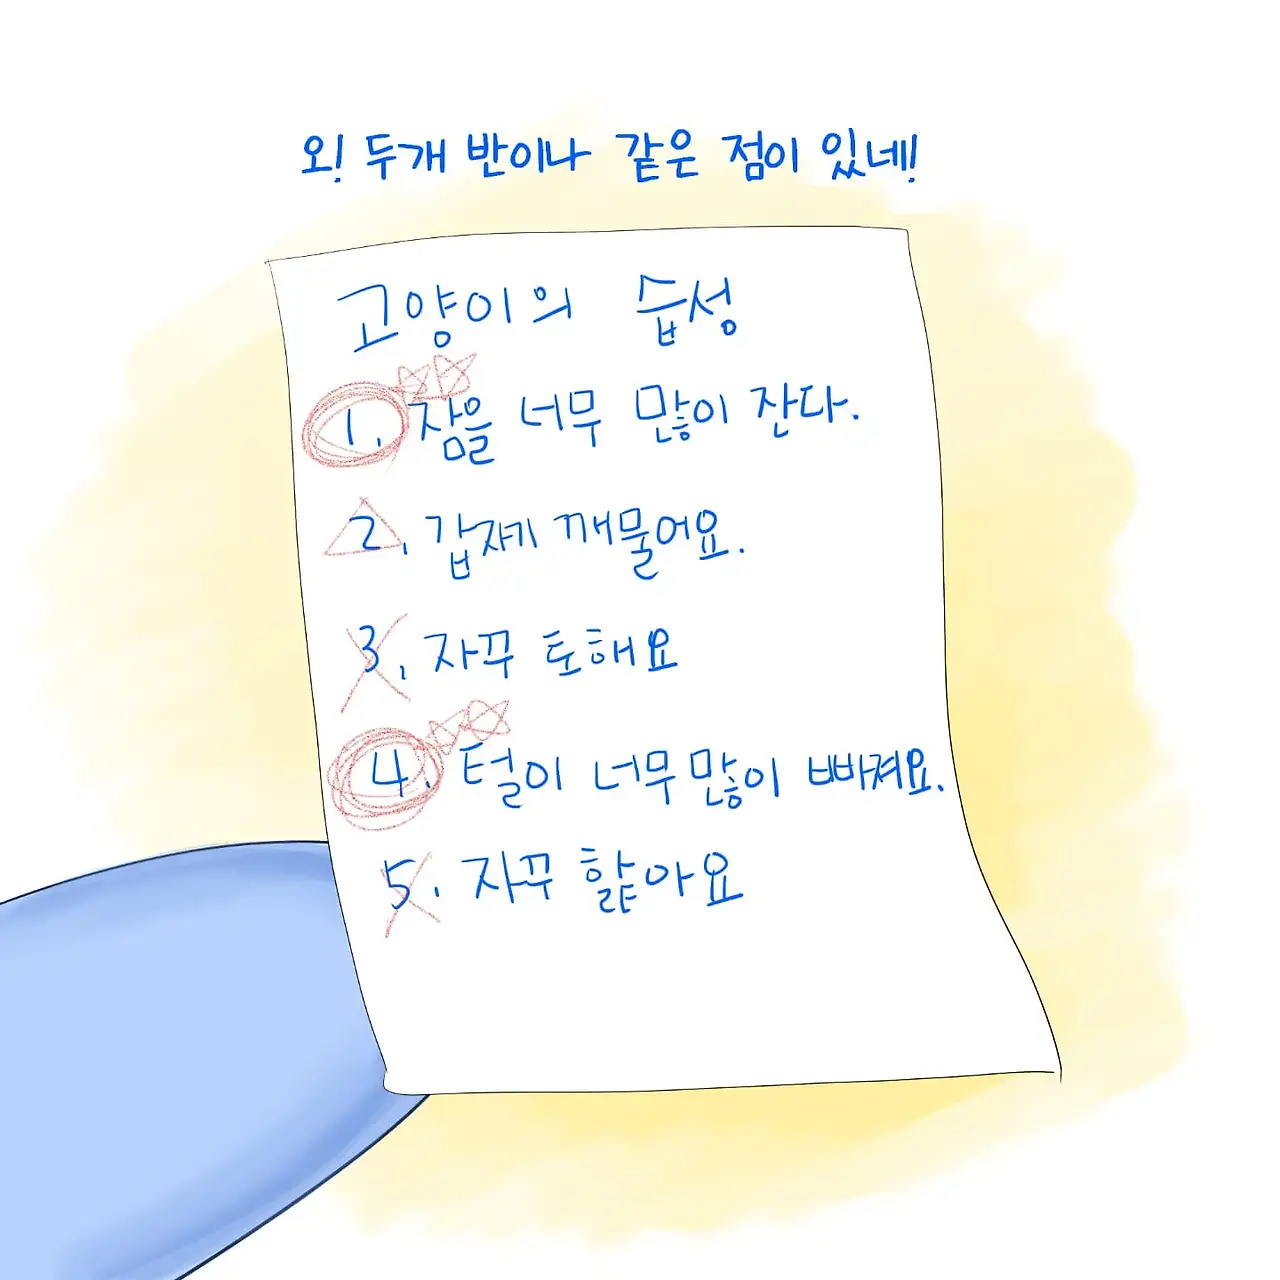 오! 두개 반이나 같은 점이 있네!
고양이의 습성
1. 잠을 너무 많이 잔다.
2. 갑자기 깨물어요.
3. 자꾸 토해요
4. 털이 너무 많이 빠져요.
5. 자꾸 핥아요